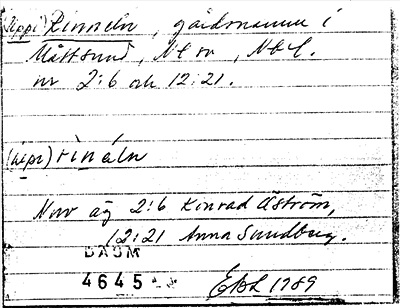 (Lippi) Rinneln, gårdsnamn i
Måttsund, Nl sn, Nbtl.
nr 2:6 och 12:21.
(lipi) rinéln
Nuv äg 2:6 Konrad Åström,
12:21 Anna Sundberg.
DAUM
4645
EBL 1989